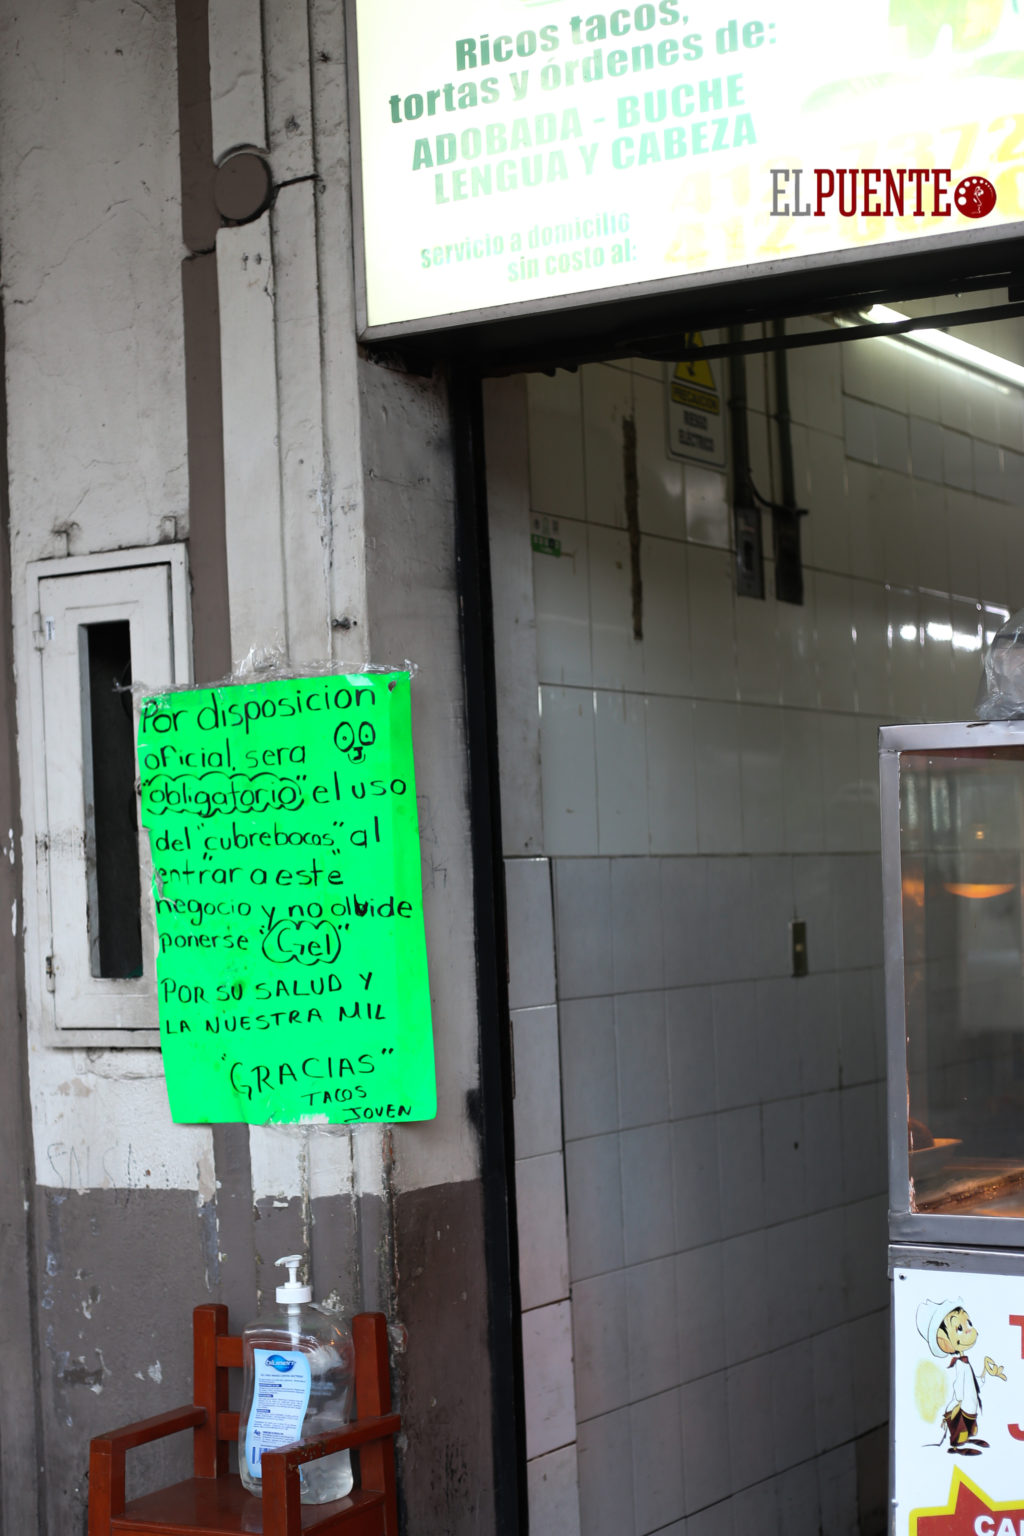 Ricos tacos,
tortas y órdenes de:
ADOBADA - BUCHE
LENGUA Y CABEZA
servicio a domicilio
sin costo al:
ELPUENTE
PRECAUCIÓN
RIESGO
ELÉCTRICO
Por disposicion
oficial, sera
"obligatorio" el uso
del "cubrebocas" al
entrar a este
negocio y no olvide
ponerse "Gel"
POR SU SALUD Y
LA NUESTRA MIL
"GRACIAS"
TACOS
JOVEN
blumen